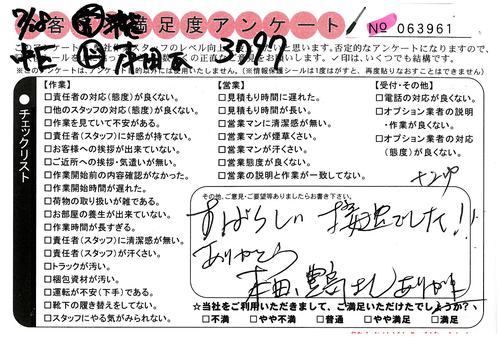 お客様満足度アンケート
No 063961
このアンケートは
の向上
否定的なアンケートになりますので、
正直なご意見をお願いします。✓印は、いくつでも結構です。
※このアンケートは、アンケート目的以外には使用いたしません。(※情報保護シールは1度はがすと、再度貼りなおすことはできません)
3997
チェックリスト
【作業】
□責任者の対応(態度)が良くない。
□他のスタッフの対応(態度)が良くない。
□作業を見ていて不安がある。
□責任者(スタッフ)に好感が持てない。
□お客様への挨拶が出来ていない。
□ご近所への挨拶・気遣いが無い。
□作業開始前の内容確認がなかった。
□作業開始時間が遅れた。
□荷物の取り扱いが雑である。
□お部屋の養生が出来ていない。
□作業時間が長すぎる。
□責任者(スタッフ)に清潔感が無い。
□責任者(スタッフ)が汗さい。
□トラックが汚い。
□梱包資材が汚い。
□運転が不安(下手)である。
□靴下の履き替えをしてない。
□スタッフにやる気がみられない。
【営業】
□見積もり時間に遅れた。
□見積もり時間が長い。
□営業マンに清潔感が無い。
□営業マンが煙草くさい。
□営業マンが汗さい。
□営業態度が良くない。
□営業の説明と作業が一致してない。
【受付・その他】
□電話の対応が良くない。
□オプション業者の説明
・作業が良くない。
□オプション業者の対応
(態度)が良くない。
その他、ご意見・ご要望等ありましたらお書き下さい。
すばらしい 接客でした!!
ありがとう
☆当社をご利用いただきまして、ご満足いただけたでしょうか?
□不満 □やや不満 □普通 □やや満足 □満足